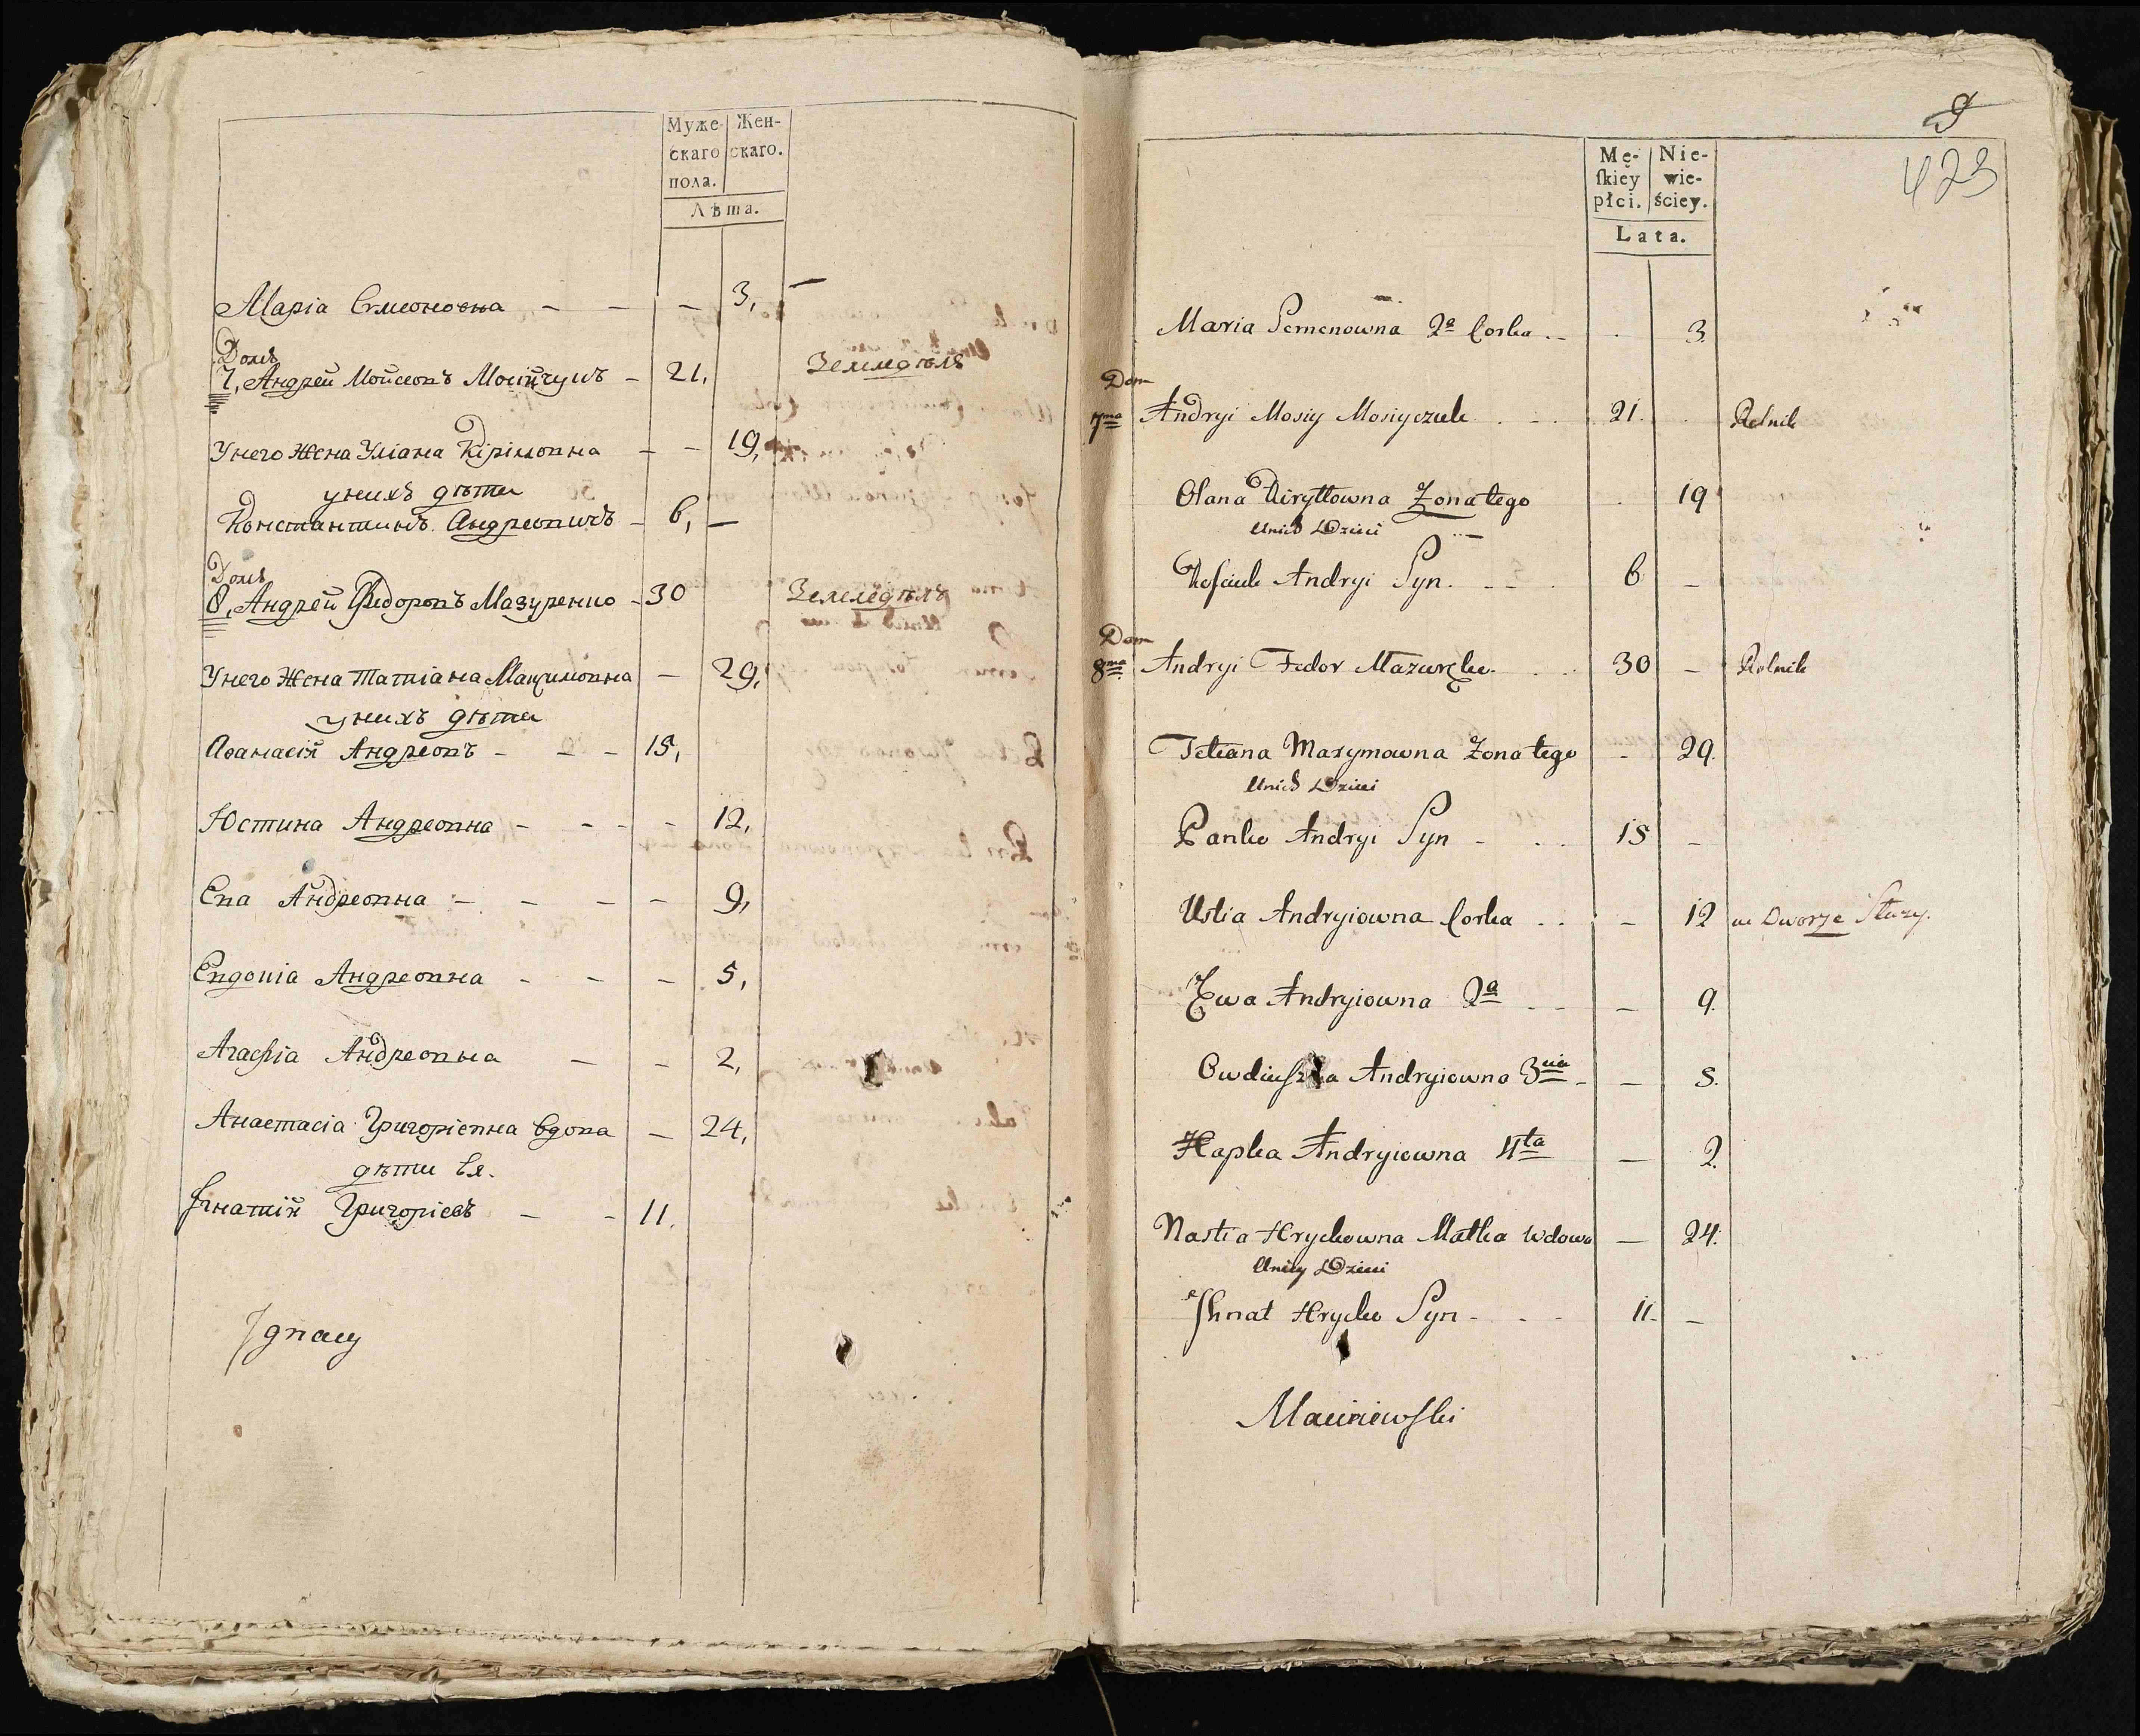 Муже- Жен-
скаго скаго.
пола.
Лѣта.
Марія Семеоновна - - - 3, -
Домъ
7, Андрей Мойсеовъ Мосийчукъ - 21, Земледѣлъ
У него Жена Уліана Кіріловна - - 19,
у нихъ дѣти
Константинъ Андреовичъ - 6, -
Домъ
8, Андрей Федоровъ Мазуренко - 30 Земледѣлъ
У него Жена Татіана Мақимовна - 29,
у нихъ дѣти
Аѳанасій Андреовъ - - - 15,
Юстина Андреовна - - - - 12,
Ева Андреовна - - - - 9,
Евдокіа Андреовна - - - 5,
Агафіа Андреовна - - 2,
Анастасіа Григоріевна вдова - 24,
дѣти Ея.
Игнатій Григоріевъ - - 11.
Ignacy
9
423
Mę- Nie-
ſkiey wie-
płci. ściey.
Lata.
Maria Semenowna 2ª Corka - 3
Dom
7ma Andryi Mosiy Mosiyczuk 21. Rolnik
Olana Kiryłłowna Żona tego 19
Unich Dzieci
Kosciuk Andryi Syn. - 6 -
Dom
8ma Andryi Fedor Mazuręko 30 - Rolnik
Tetiana Maxymowna Żona tego - 29.
Unich Dzieci
Panko Andryi Syn - 15 -
Ustia Andryiowna Corka - 12 we Dworze Służy.
Ewa Andryiowna 2ª - 9.
Owdiuszka Andryiowna 3cia - - 5.
Hapka Andryiowna 4ta - 2.
Nastia Hryckowna Matka Wdowa - 24.
Uniey Dzieci
Ihnat Hrycko Syn - 11. -
Maciniewſki